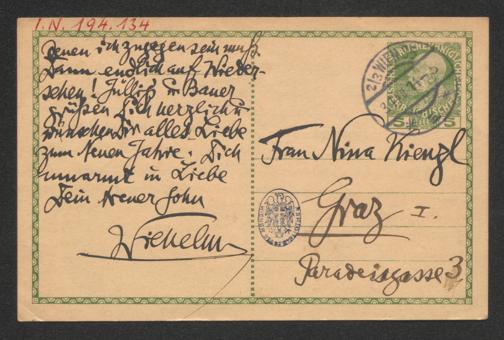 I.N. 194.134
denen ich zugegen sein muß.
Dann endlich auf Wieder-
sehen! Jülligs u. Bauer
grüßen Dich herzlich u.
wünschen Dir alles Liebe
zum Neuen Jahre. Dich
umarmt in Liebe
Dein treuer Sohn
Wilhelm
2/3 WIEN
5 5
Frau Nina Kienzl
Graz I.
Paradeisgasse 3